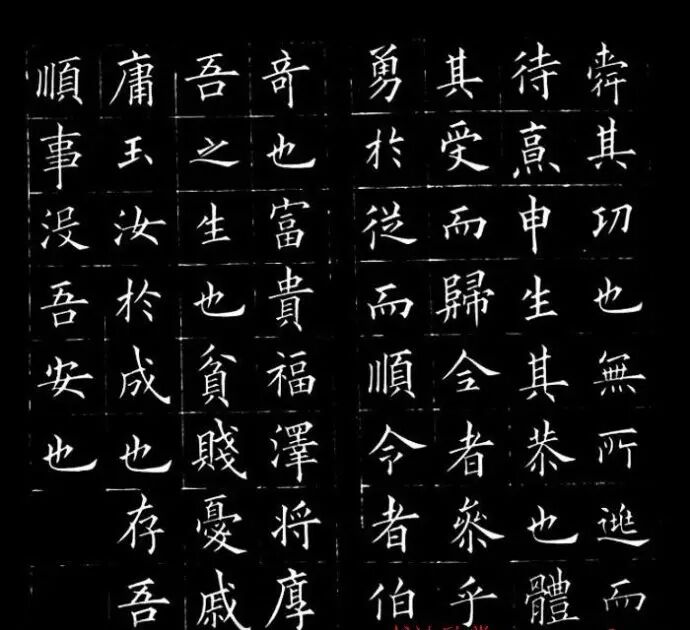 舜其功也無所逃而
待烹申生其恭也體
其受而歸全者參乎
勇於從而順令者伯
奇也富貴福澤将厚
吾之生也貧賤憂戚
庸玉汝於成也存吾
順事没吾安也